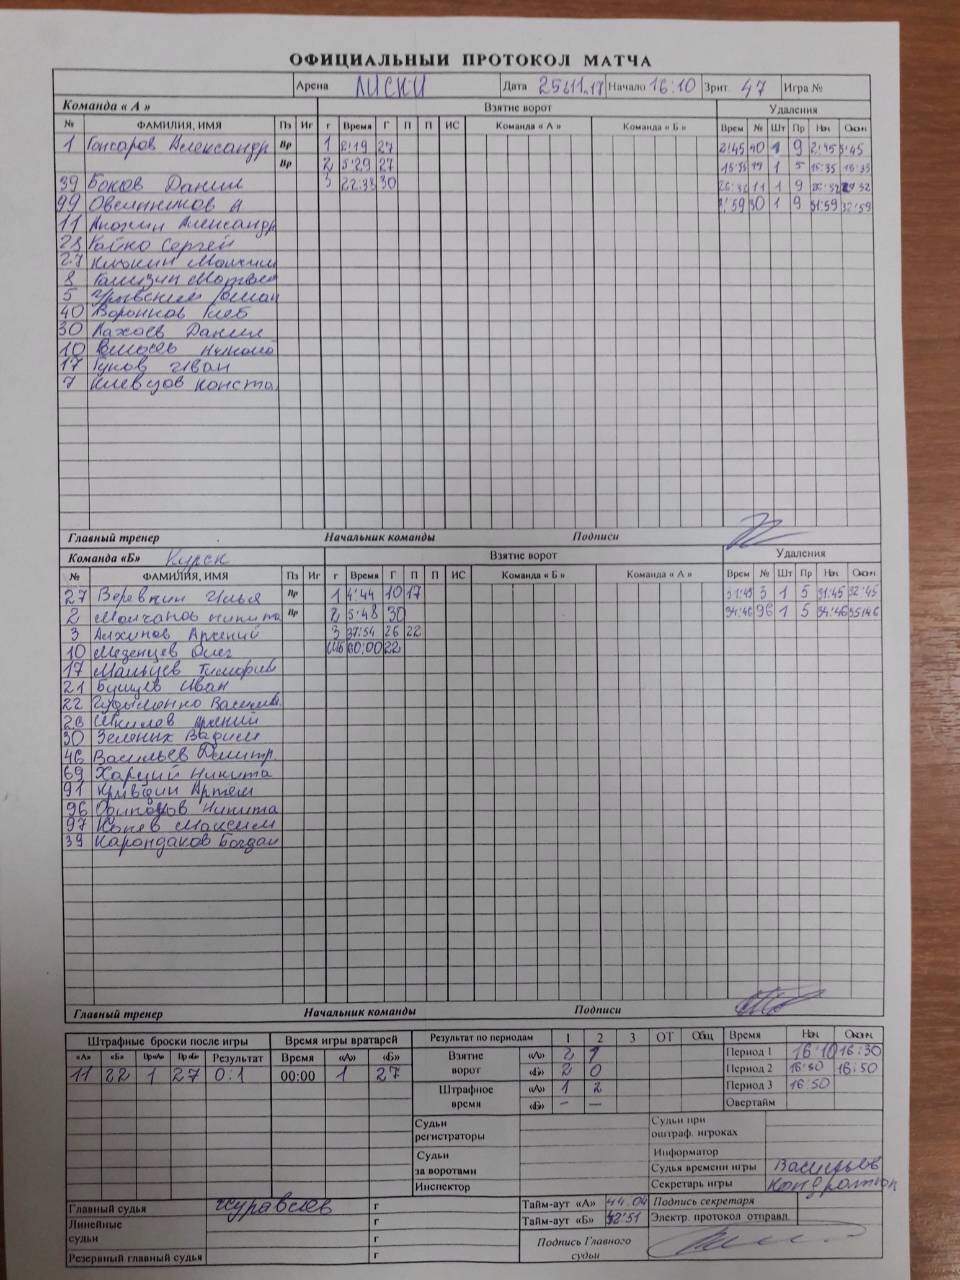 ОФИЦИАЛЬНЫЙ ПРОТОКОЛ МАТЧА
Арена ЛИСКИ Дата 25.11.17 Начало 16:10 Зрит. 47 Игра №
Команда « А » Взятие ворот Удаления
№ ФАМИЛИЯ, ИМЯ Пз Иг г Время Г П П ИС Команда « А » Команда « Б » Врем № Шт Пр Нач Окон
1 Гончаров Александр Вр 1 2:19 27 2:45 40 1 9 2:45 3:45
Вр 2 5:29 27 1 5 15:35 16:35
39 Боков Данил 3 22:33 30 11 1 9
99 Овсянников А 30 1 9 31:59 32:59
11 Анохин Александр
Гайко Сергей
27 Клокин Максим
Матвей
5 Роман
40 Воронков Глеб
30 Лахоев Данил
10 Власов
17 Гуков Иван
7 Клевцов Конста
Главный тренер Начальник команды Подписи
Команда «Б» Курск Взятие ворот Удаления
№ ФАМИЛИЯ, ИМЯ Пз Иг г Время Г П П ИС Команда « Б » Команда « А » Врем № Шт Пр Нач Окон
27 Веревкин Илья Вр 1 4:44 10 17 31:45 3 1 5 31:45 32:45
2 Молчанов Никита Вр 2 5:48 30 34:46 96 1 5 34:46 35:46
3 Архипов Арсений 3 37:54 26 22
10 Меденцев Олег 60:00 22
17 Мальцев Тимофей
21 Бущев Иван
22 Гудыменко Васили
26 Шкилев Арсений
30 Зеленых Вадим
46 Васильев Дмитр
69 Харций Никита
91 Кривдин Артем
96 Никита
97 Конев Максим
39 Карондаков Богдан
Главный тренер Начальник команды Подписи
Штрафные броски после игры Время игры вратарей Результат по периодам 1 2 3 ОТ Общ Время Нач Оконч.
«А» «Б» ВрА ВрБ Результат Время «А» «Б» Взятие ворот «А» 2 1 Период 1 16:10 16:30
11 22 1 27 0:1 00:00 1 27 «Б» 2 0 Период 2 16:30 16:50
Штрафное время «А» 1 2 Период 3 16:50
«Б» – – Овертайм
Судьи регистраторы Судьи при оштраф. игроках
Информатор
Судьи за воротами Судья времени игры Васильев
Инспектор Секретарь игры Кондратюк
Главный судья Журавлев г Тайм-аут «А» 44.04 Подпись секретаря
Линейные судьи г Тайм-аут «Б» 42:51 Электр. протокол отправл.
г Подпись Главного судьи
Резервный главный судья г